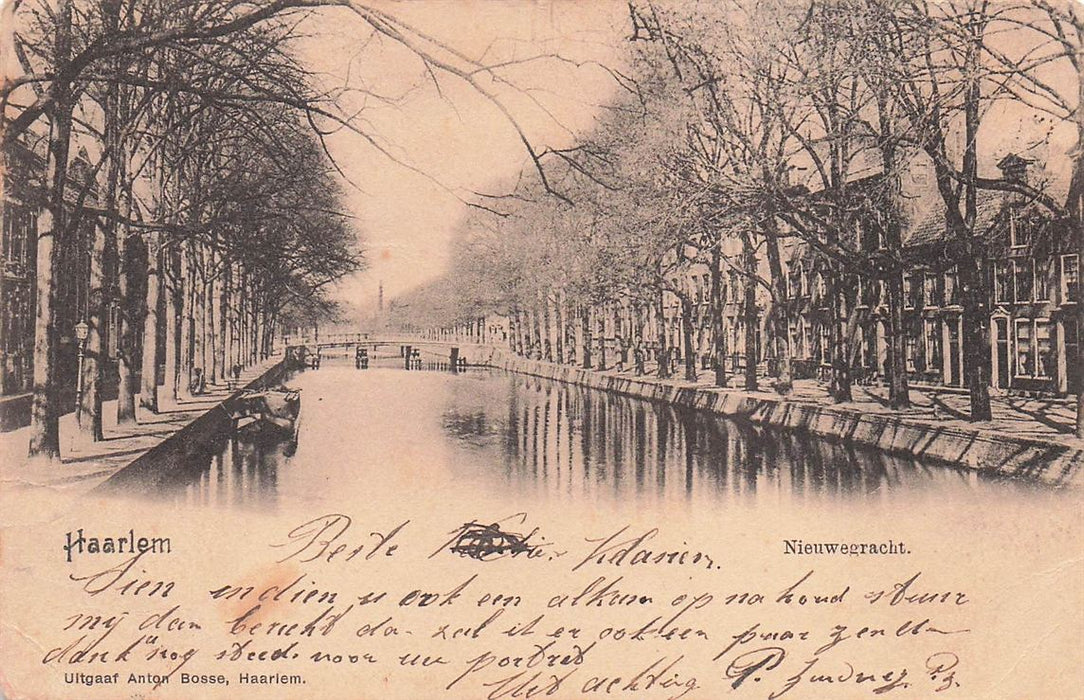 Haarlem
Nieuwegracht.
Beste Klasien.
Sien indien u ook een album op na houd stuur
my dan bericht da zal it er ook een paar zend
dank u nog steeds voor uw portret
Uitgaaf Anton Bosse, Haarlem.
Uit achting P.